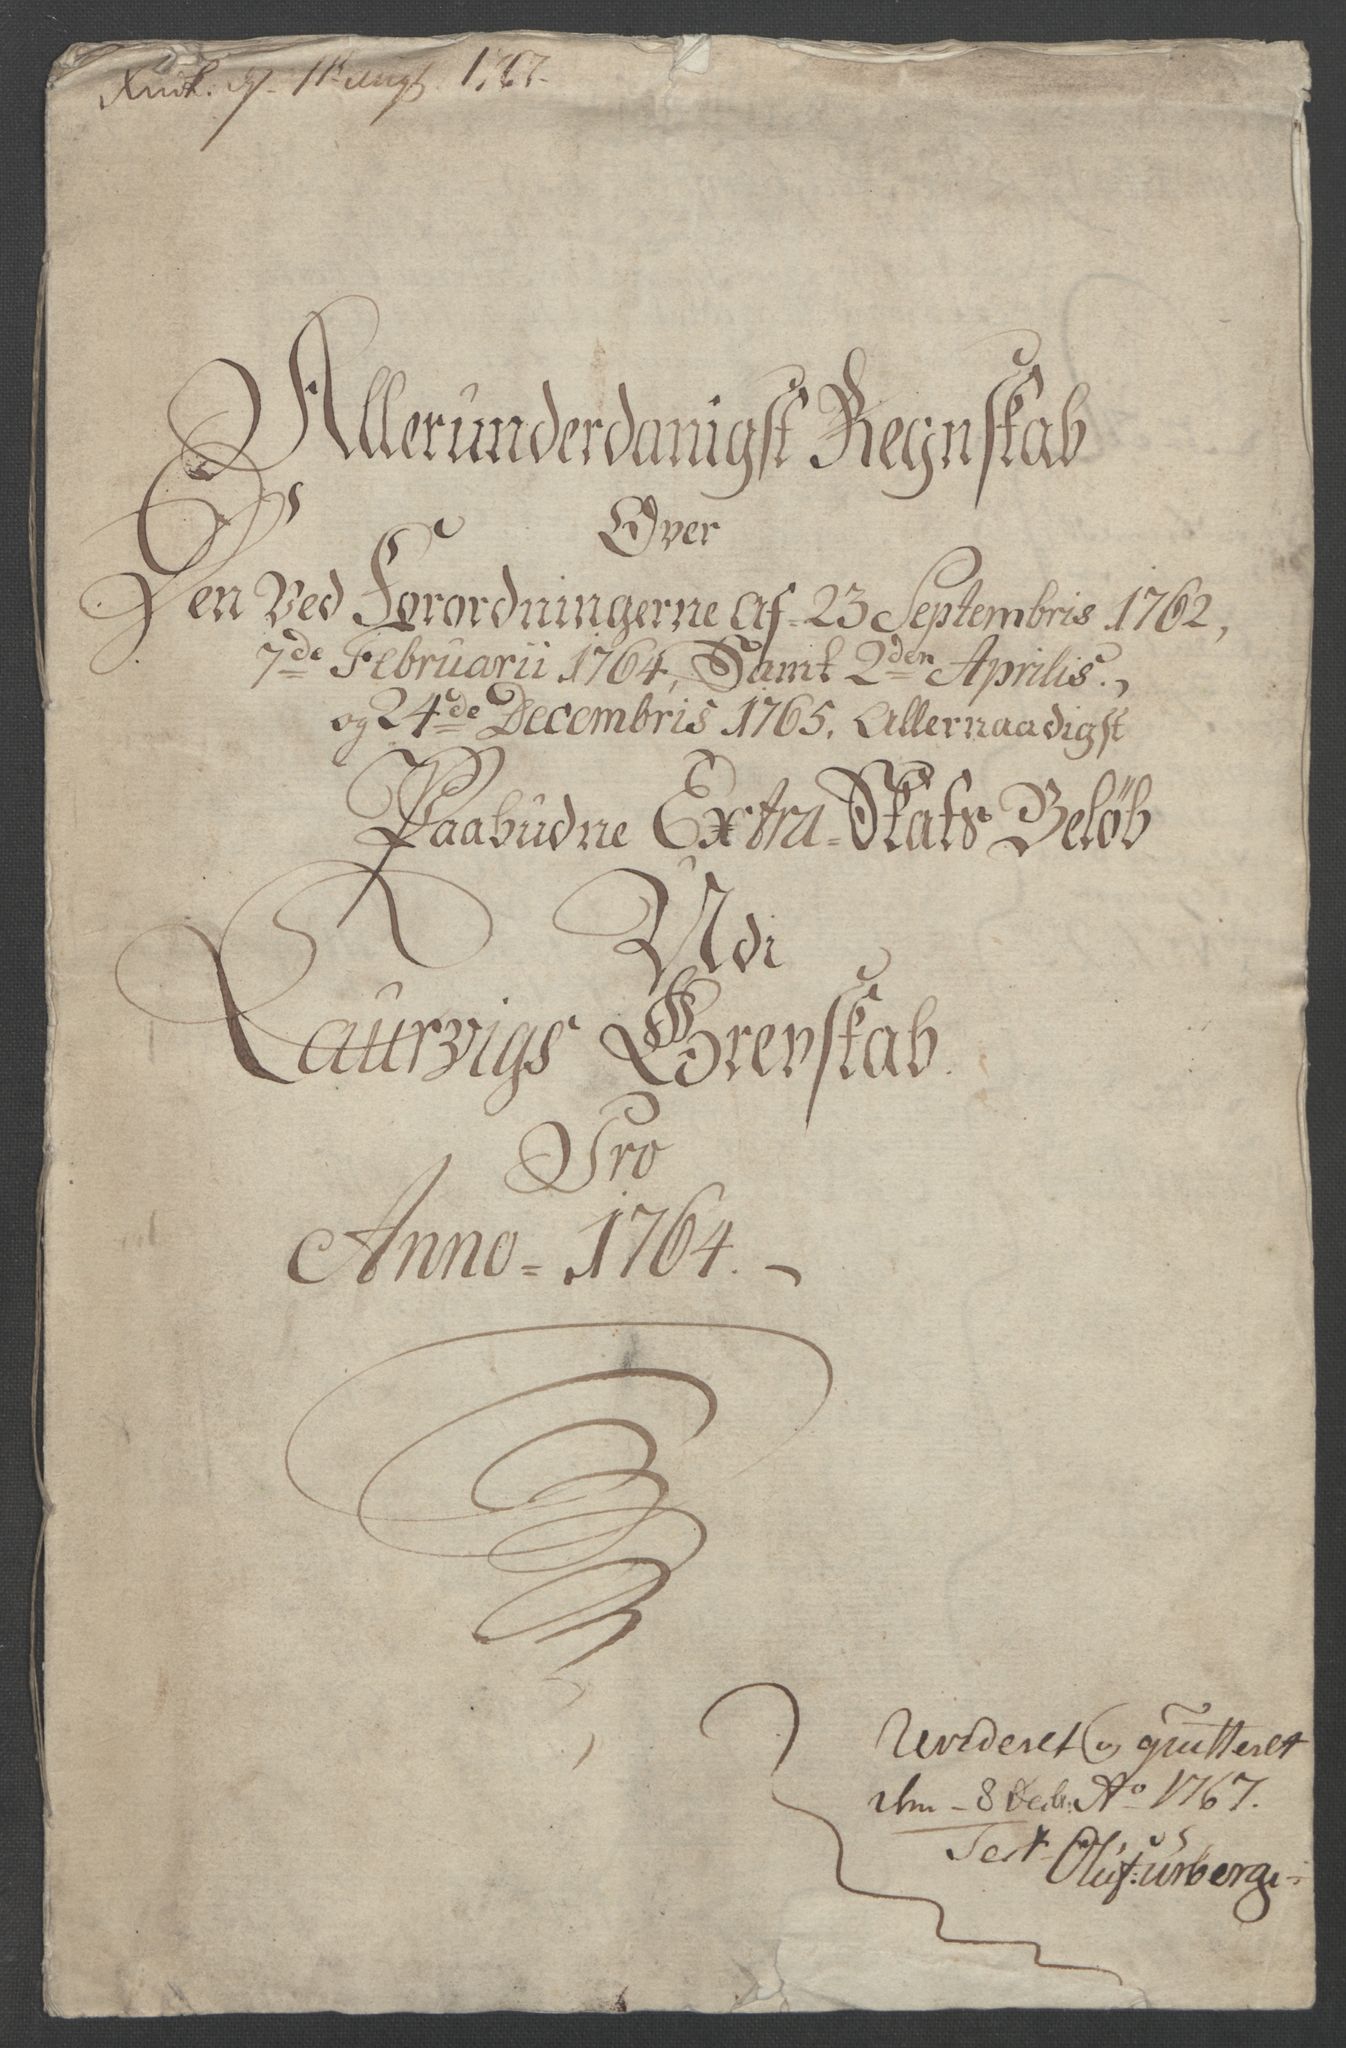 1767.
Allerunderdanigst Regnskab
Over
Den Ved Forordningerne af 23 Septembris 1762,
7de Februarii 1764, Samt 2den Aprilis.,
og 24de Decembris 1765. Allernaadigst
Paabudne Extra-Skats Beløb
Udi
Laurvigs Grevskab.
Pro
Anno = 1764.
Revideret og quitteret
8 Ao 1767.
Test Oluf: urberg